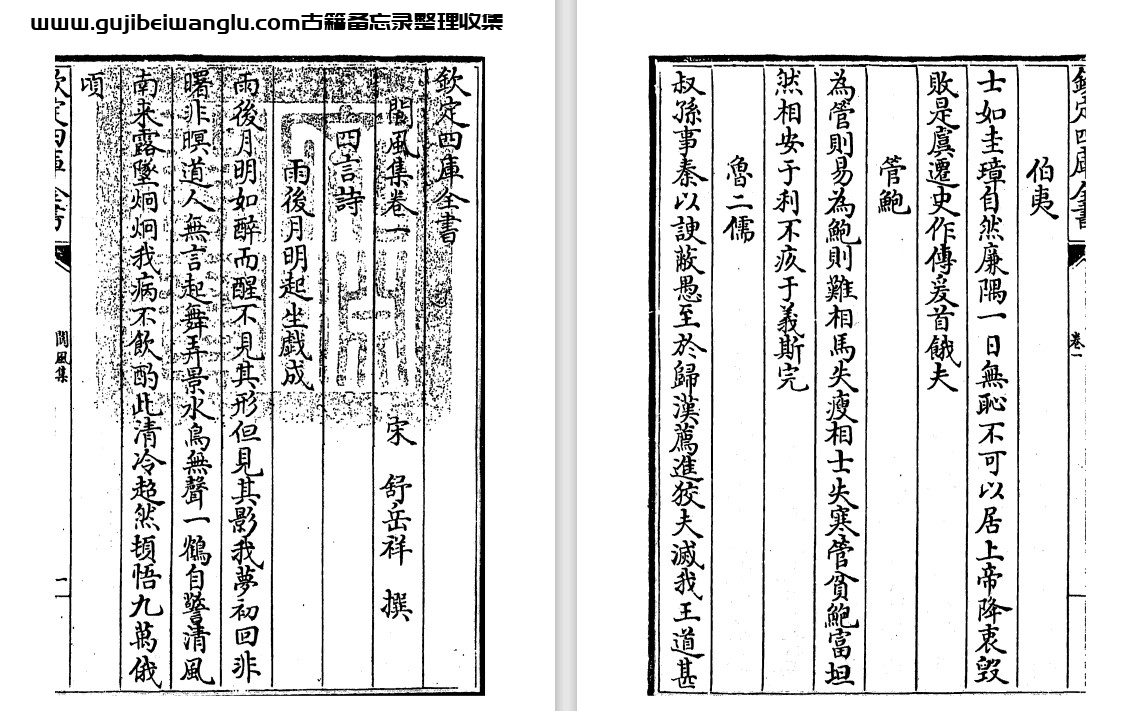 www.gujibeiwanglu.com古籍备忘录整理收集
欽定四庫全書
閬風集卷一
宋 舒岳祥 撰
四言詩
雨後月明起坐戲成
雨後月明如醉而醒不見其形但見其影我夢初回非
曙非暝道人無言起舞弄景水鳥無聲一鶴自警清風
南来露墜炯炯我病不飲酌此清冷超然頓悟九萬俄
頃
欽定四庫全書
閬風集
一
欽定四庫全書
卷一
伯夷
士如圭璋自然廉隅一日無恥不可以居上帝降衷毀
敗是虞遷史作傳爰首餓夫
管鮑
為管則易為鮑則難相馬失瘦相士失寒管貧鮑富坦
然相安于利不疚于義斯完
魯二儒
叔孫事秦以諛蔽愚至於歸漢薦進狡夫滅我王道甚